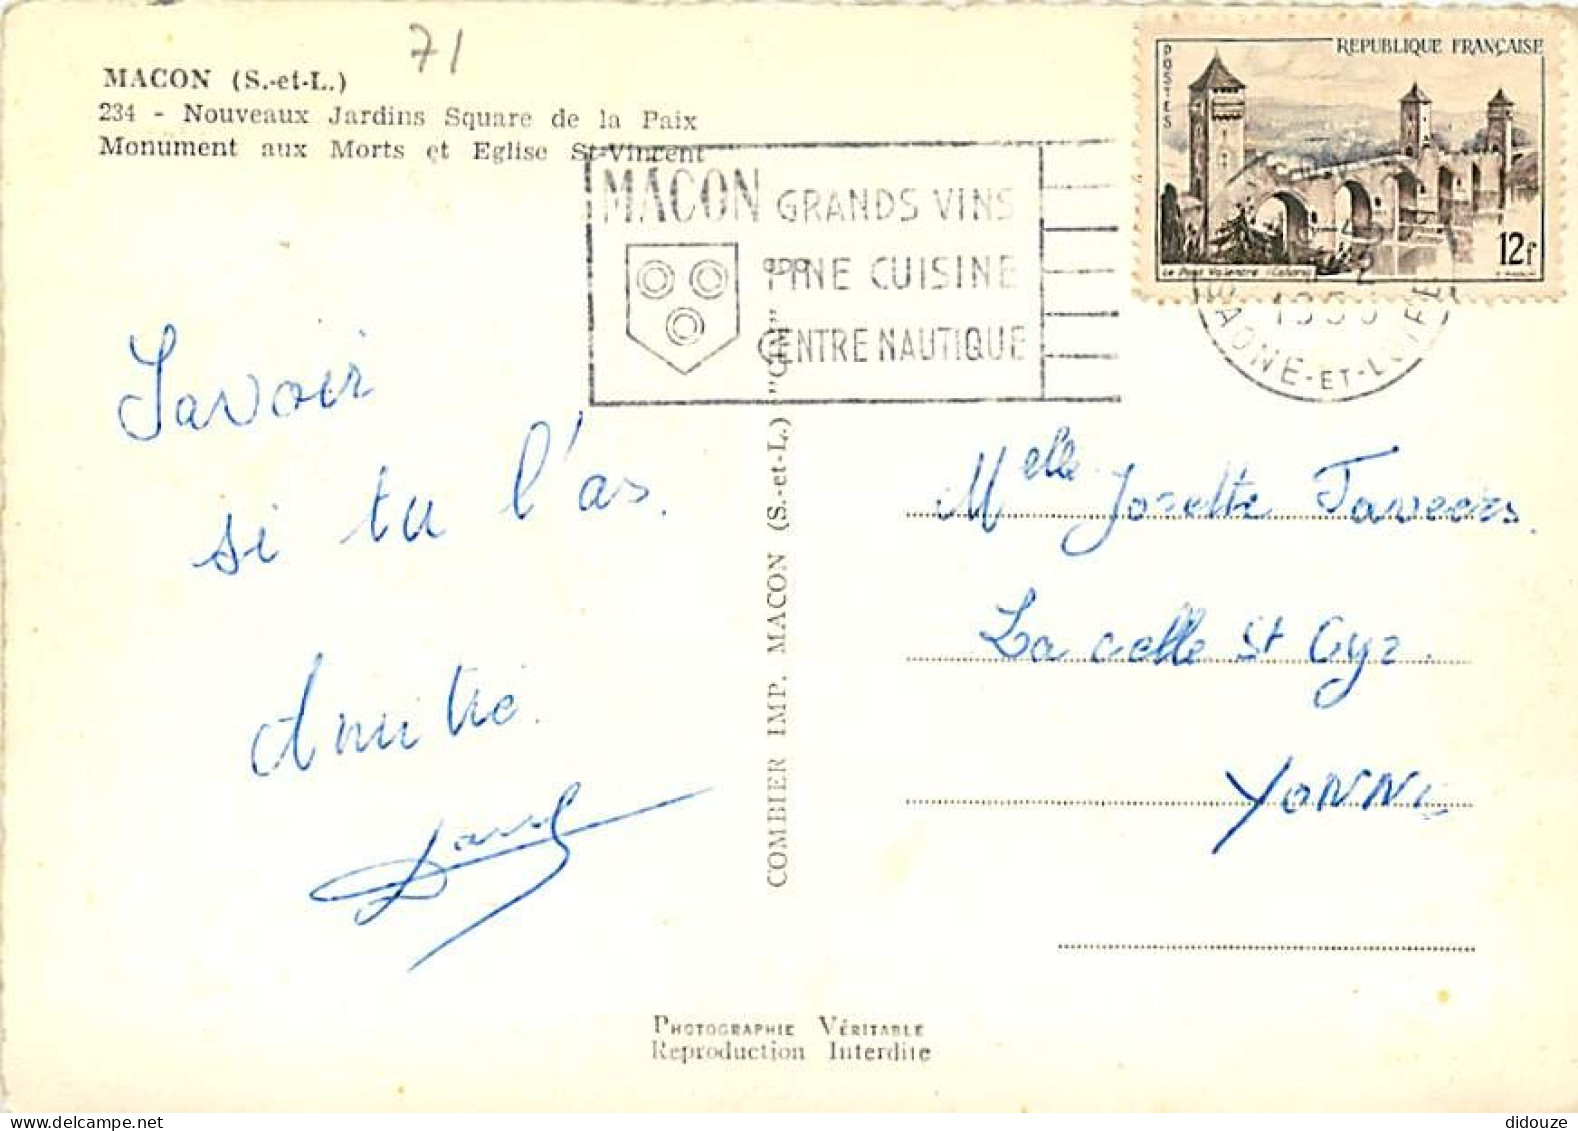 71
MACON (S.-et-L.)
234 - Nouveaux Jardins Square de la Paix
Monument aux Morts et Eglise St-Vincent
MACON GRANDS VINS
FINE CUISINE
CENTRE NAUTIQUE
REPUBLIQUE FRANÇAISE
POSTES
Le Pont Valentré (Cahors)
12f
SAONE-ET-LOIRE
Savoir
si tu l'as.
Amitié.
COMBIER IMP. MACON (S.-et-L.) "CIM"
Melle Josette Taveers.
La celle St Cyr.
YONNE
PHOTOGRAPHIE VÉRITABLE
Reproduction Interdite
didouze